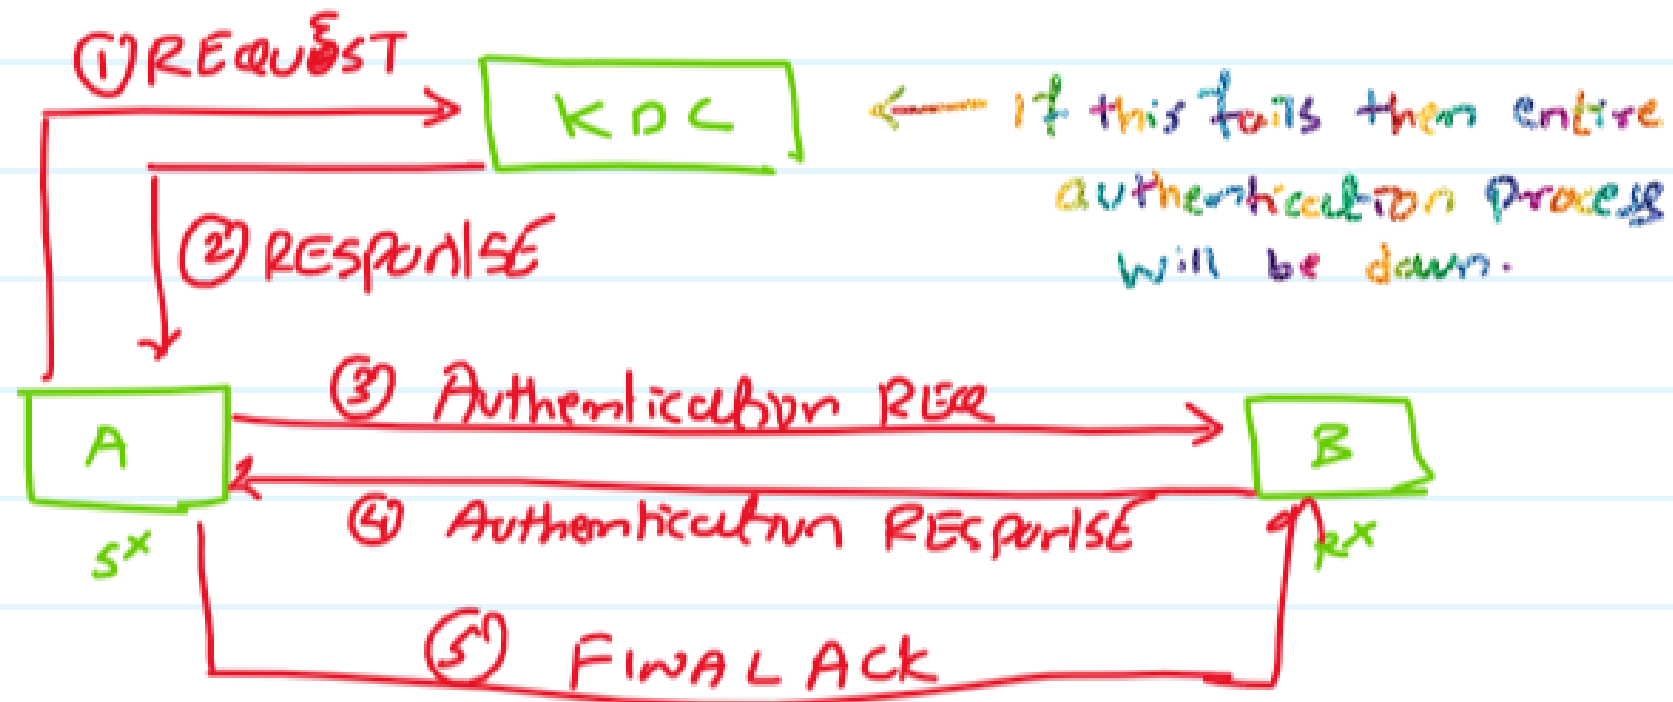 ① REQUEST
KDC
← If this fails then entire
authentication process
will be down.
② RESPONSE
③ Authentication REQ
A
B
④ Authentication RESPONSE
Sx
Rx
⑤ FINAL ACK